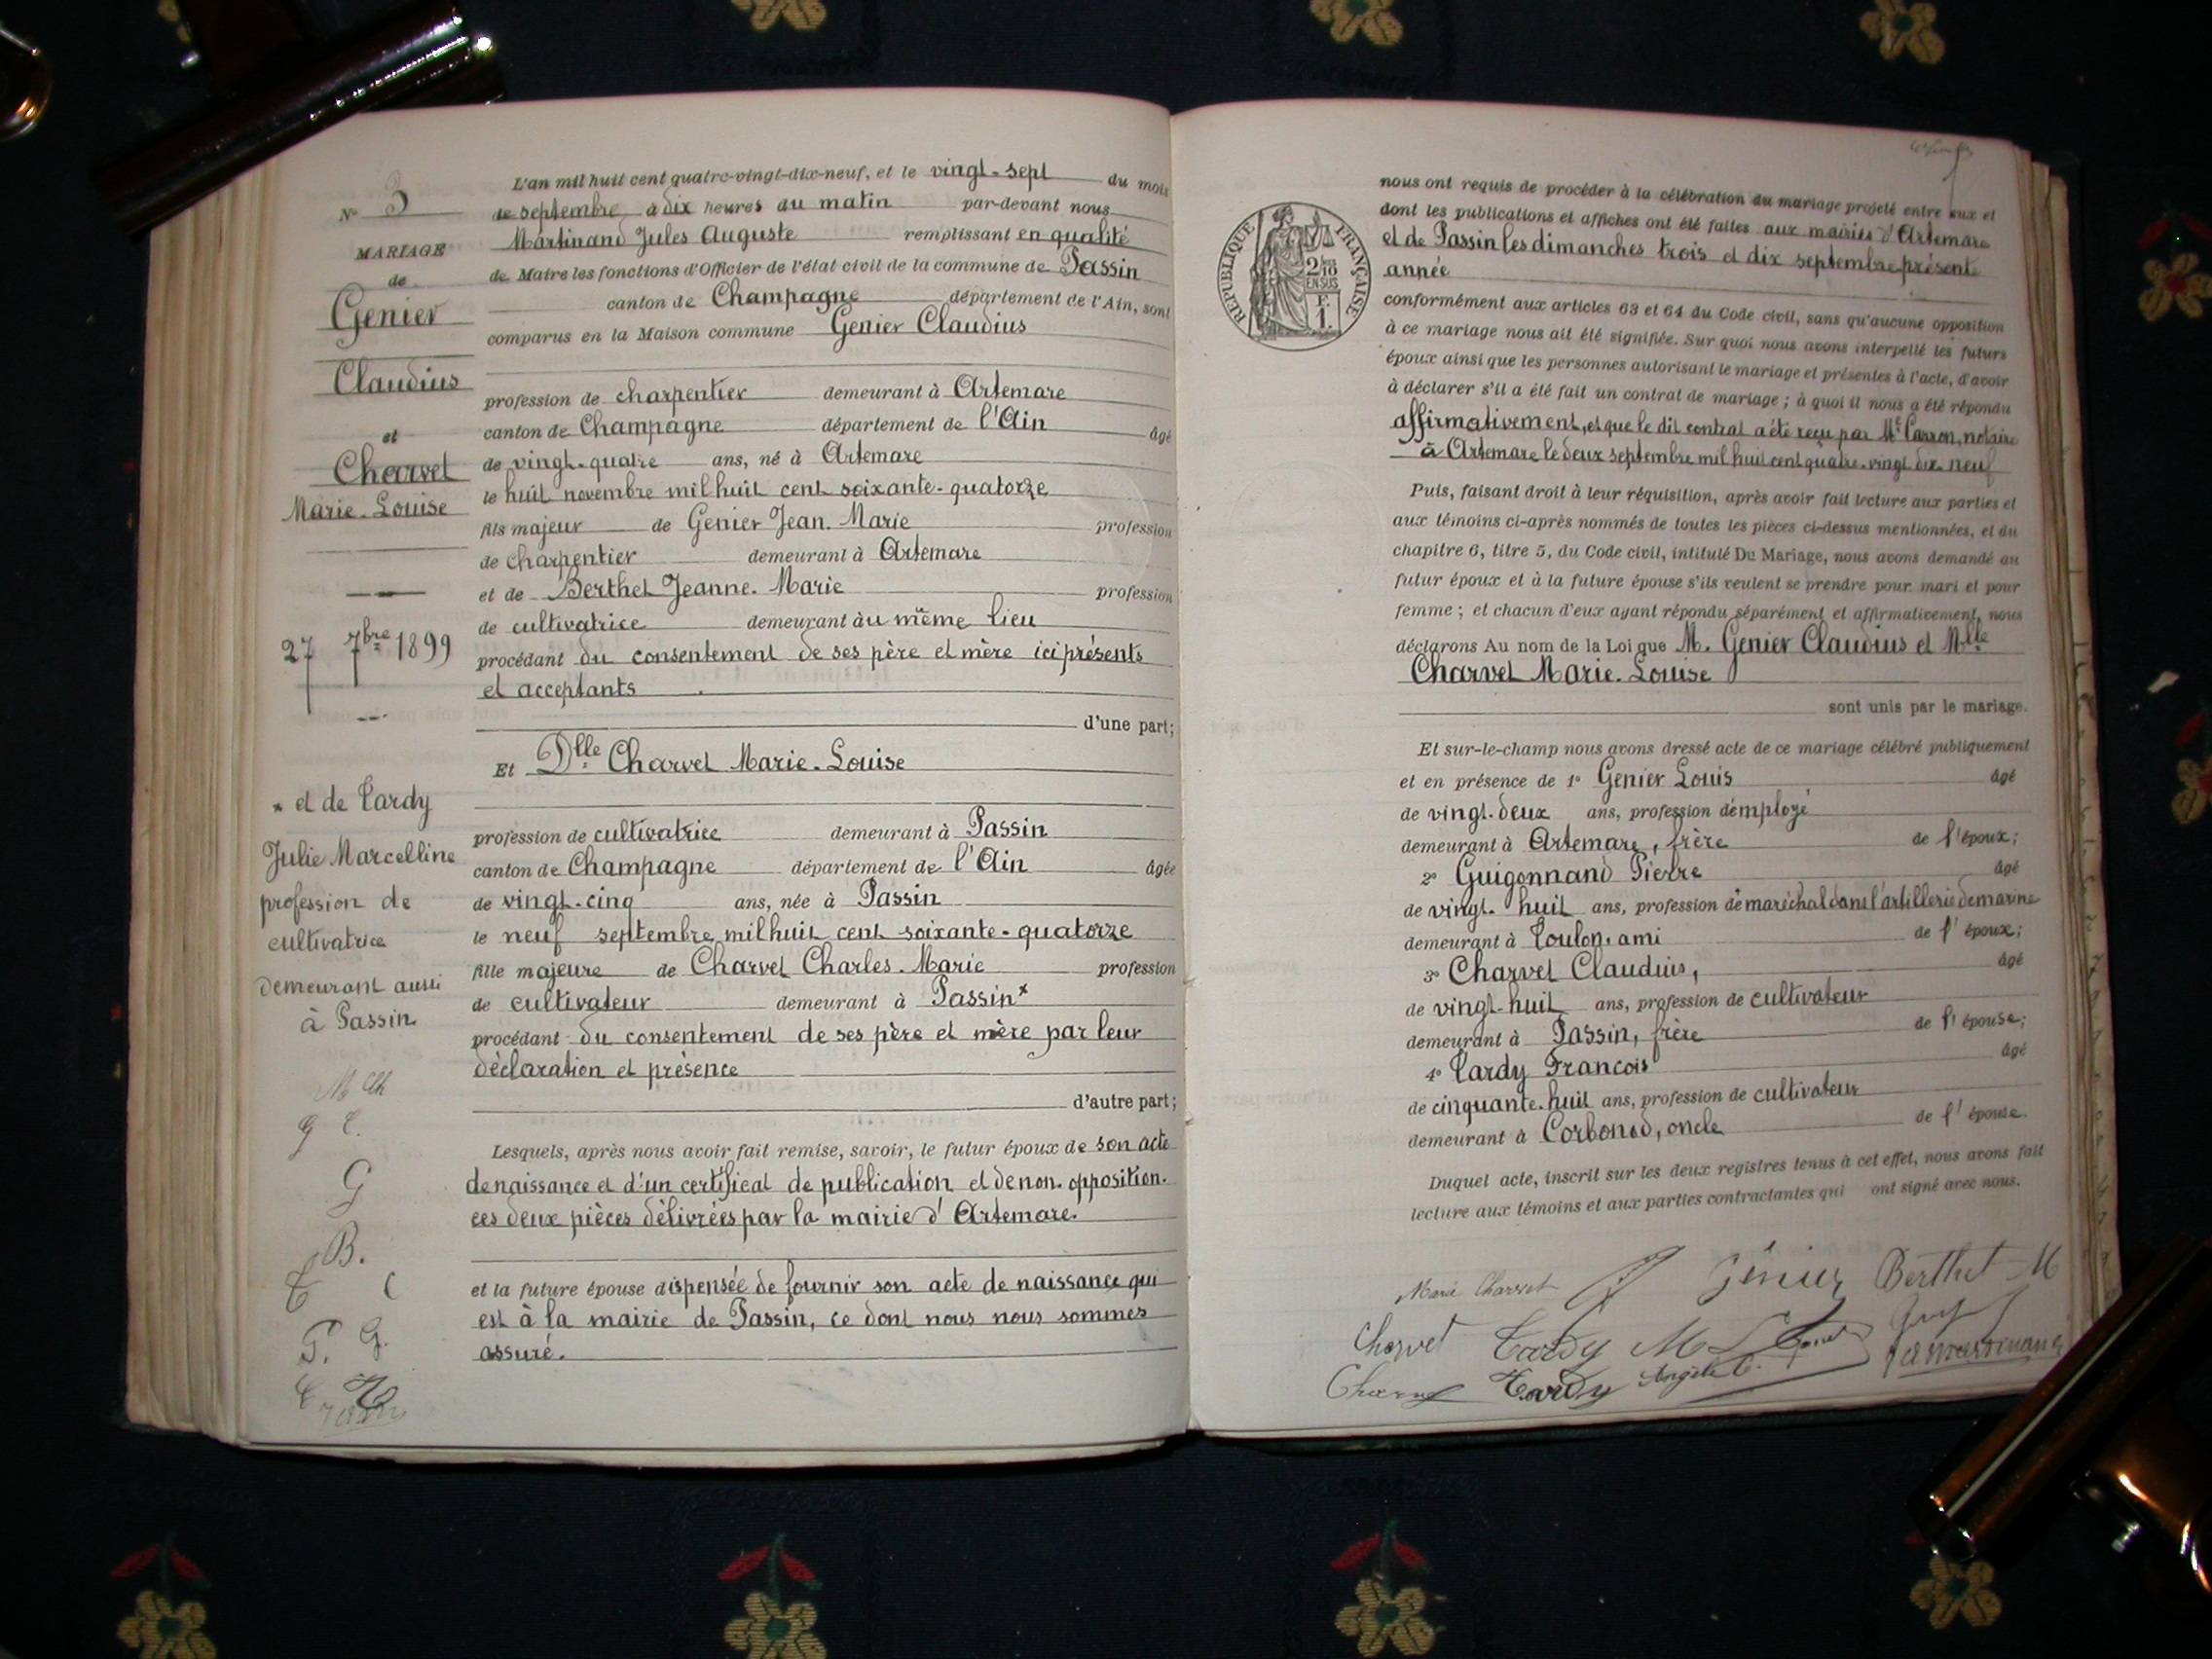 N° 3
MARIAGE
de
Genier
Claudius
et
Charvet
Marie-Louise
27 7bre 1899
* et de Tardy
Julie Marcelline
profession de
cultivatrice
demeurant aussi
à Passin.
M Ch
G C.
G
B.
T C
P. G.
L'an mil huit cent quatre-vingt-dix-neuf, et le vingt-sept du mois
de septembre à dix heures du matin par-devant nous
Martinand Jules Auguste remplissant en qualité
de Maire les fonctions d'Officier de l'état civil de la commune de Passin
canton de Champagne département de l'Ain, sont
comparus en la Maison commune Genier Claudius
profession de charpentier demeurant à Artemare
canton de Champagne département de l'Ain âgé
de vingt-quatre ans, né à Artemare
le huit novembre mil huit cent soixante-quatorze
fils majeur de Genier Jean-Marie profession
de charpentier demeurant à Artemare
et de Berthet Jeanne-Marie profession
de cultivatrice demeurant àu même lieu
procédant du consentement de ses père et mère ici présents
et acceptants
d'une part;
Et Dlle Charvet Marie-Louise
profession de cultivatrice demeurant à Passin
canton de Champagne département de l'Ain âgée
de vingt-cinq ans, née à Passin
le neuf septembre mil huit cent soixante-quatorze
fille majeure de Charvet Charles-Marie profession
de cultivateur demeurant à Passin x
procédant du consentement de ses père et mère par leur
déclaration et présence
d'autre part;
Lesquels, après nous avoir fait remise, savoir, le futur époux de son acte
de naissance et d'un certificat de publication et de non-opposition.
ces deux pièces délivrées par la mairie d'Artemare.
et la future épouse dispensée de fournir son acte de naissance qui
est à la mairie de Passin, ce dont nous nous sommes
assuré.
RÉPUBLIQUE FRANÇAISE
2/10
EN SUS
F.
1.
nous ont requis de procéder à la célébration du mariage projeté entre eux et
dont les publications et affiches ont été faites aux mairies d'Artemare
et de Passin les dimanches trois et dix septembre présente
année
conformément aux articles 63 et 64 du Code civil, sans qu'aucune opposition
à ce mariage nous ait été signifiée. Sur quoi nous avons interpellé les futurs
époux ainsi que les personnes autorisant le mariage et présentes à l'acte, d'avoir
à déclarer s'il a été fait un contrat de mariage ; à quoi il nous a été répondu
affirmativement, et que le dit contrat a été reçu par Me Carron, notaire
à Artemare le deux septembre mil huit cent quatre-vingt dix-neuf
Puis, faisant droit à leur réquisition, après avoir fait lecture aux parties et
aux témoins ci-après nommés de toutes les pièces ci-dessus mentionnées, et du
chapitre 6, titre 5, du Code civil, intitulé Du Mariage, nous avons demandé au
futur époux et à la future épouse s'ils veulent se prendre pour mari et pour
femme ; et chacun d'eux ayant répondu séparément et affirmativement, nous
déclarons Au nom de la Loi que M. Genier Claudius et Mlle
Charvet Marie-Louise
sont unis par le mariage.
Et sur-le-champ nous avons dressé acte de ce mariage célébré publiquement
et en présence de 1° Genier Louis âgé
de vingt-deux ans, profession d'employé
demeurant à Artemare, frère de l'époux;
2° Guigonnand Pierre âgé
de vingt-huit ans, profession de maréchal dans l'artillerie de marine
demeurant à Toulon, ami de l'époux;
3° Charvet Claudius, âgé
de vingt-huit ans, profession de cultivateur
demeurant à Passin, frère de l'épouse;
4° Tardy Francois âgé
de cinquante-huit ans, profession de cultivateur
demeurant à Corbonod, oncle de l'épouse.
Duquel acte, inscrit sur les deux registres tenus à cet effet, nous avons fait
lecture aux témoins et aux parties contractantes qui ont signé avec nous.
Marie Charvet Génier Berthet M
Charvet Tardy M
Tardy Angèle C. Martinand